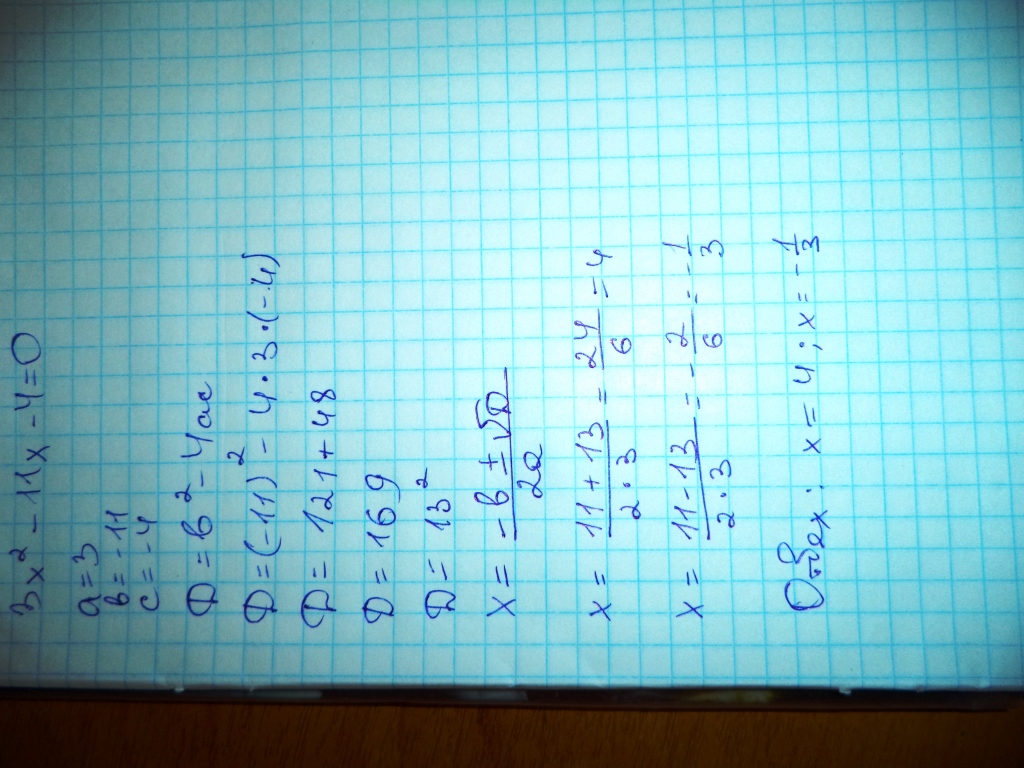 3x² - 11x - 4 = 0
a = 3
в = -11
c = -4
D = в² - 4ac
D = (-11)² - 4 · 3 · (-4)
D = 121 + 48
D = 169
D = 13²
x = (-в ± √D) / 2a
x = (11 + 13) / (2 · 3) = 24/6 = 4
x = (11 - 13) / (2 · 3) = -2/6 = -1/3
x = 4 ; x = -1/3